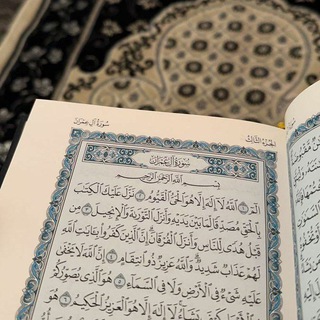 سُورَةُ آلِ عِمْرَانَ
الجُزْءُ الثَّالِثُ
سُورَةُ آلِ عِمْرَانَ
بِسْمِ اللَّهِ الرَّحْمَٰنِ الرَّحِيمِ
الٓمٓ ١ اللَّهُ لَا إِلَٰهَ إِلَّا هُوَ الْحَيُّ الْقَيُّومُ ٢ نَزَّلَ عَلَيْكَ الْكِتَٰبَ
بِالْحَقِّ مُصَدِّقًا لِّمَا بَيْنَ يَدَيْهِ وَأَنزَلَ التَّوْرَىٰةَ وَالْإِنجِيلَ ٣ مِن
قَبْلُ هُدًى لِّلنَّاسِ وَأَنزَلَ الْفُرْقَانَ إِنَّ الَّذِينَ كَفَرُوا بِـَٔايَٰتِ اللَّهِ
لَهُمْ عَذَابٌ شَدِيدٌ وَاللَّهُ عَزِيزٌ ذُو انتِقَامٍ ٤ إِنَّ اللَّهَ لَا يَخْفَىٰ
عَلَيْهِ شَيْءٌ فِي الْأَرْضِ وَلَا فِي السَّمَاءِ ٥ هُوَ الَّذِي يُصَوِّرُكُمْ
يَشَاءُ لَا إِلَٰهَ إِلَّا هُوَ الْعَزِيزُ الْحَكِيمُ ٦ هُوَ